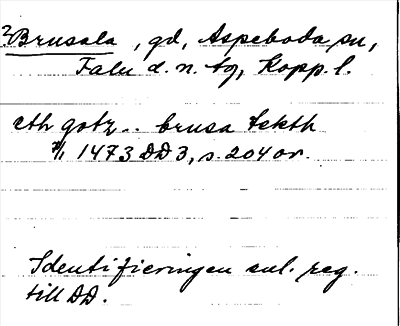 ?Brusala, gd, Aspeboda sn,
Falu d. n. tg, Kopp. l.
eth gotz.. brusa tekth
7/1 1473 DD3, s. 204 or.
Identifieringen enl. reg.
till DD.